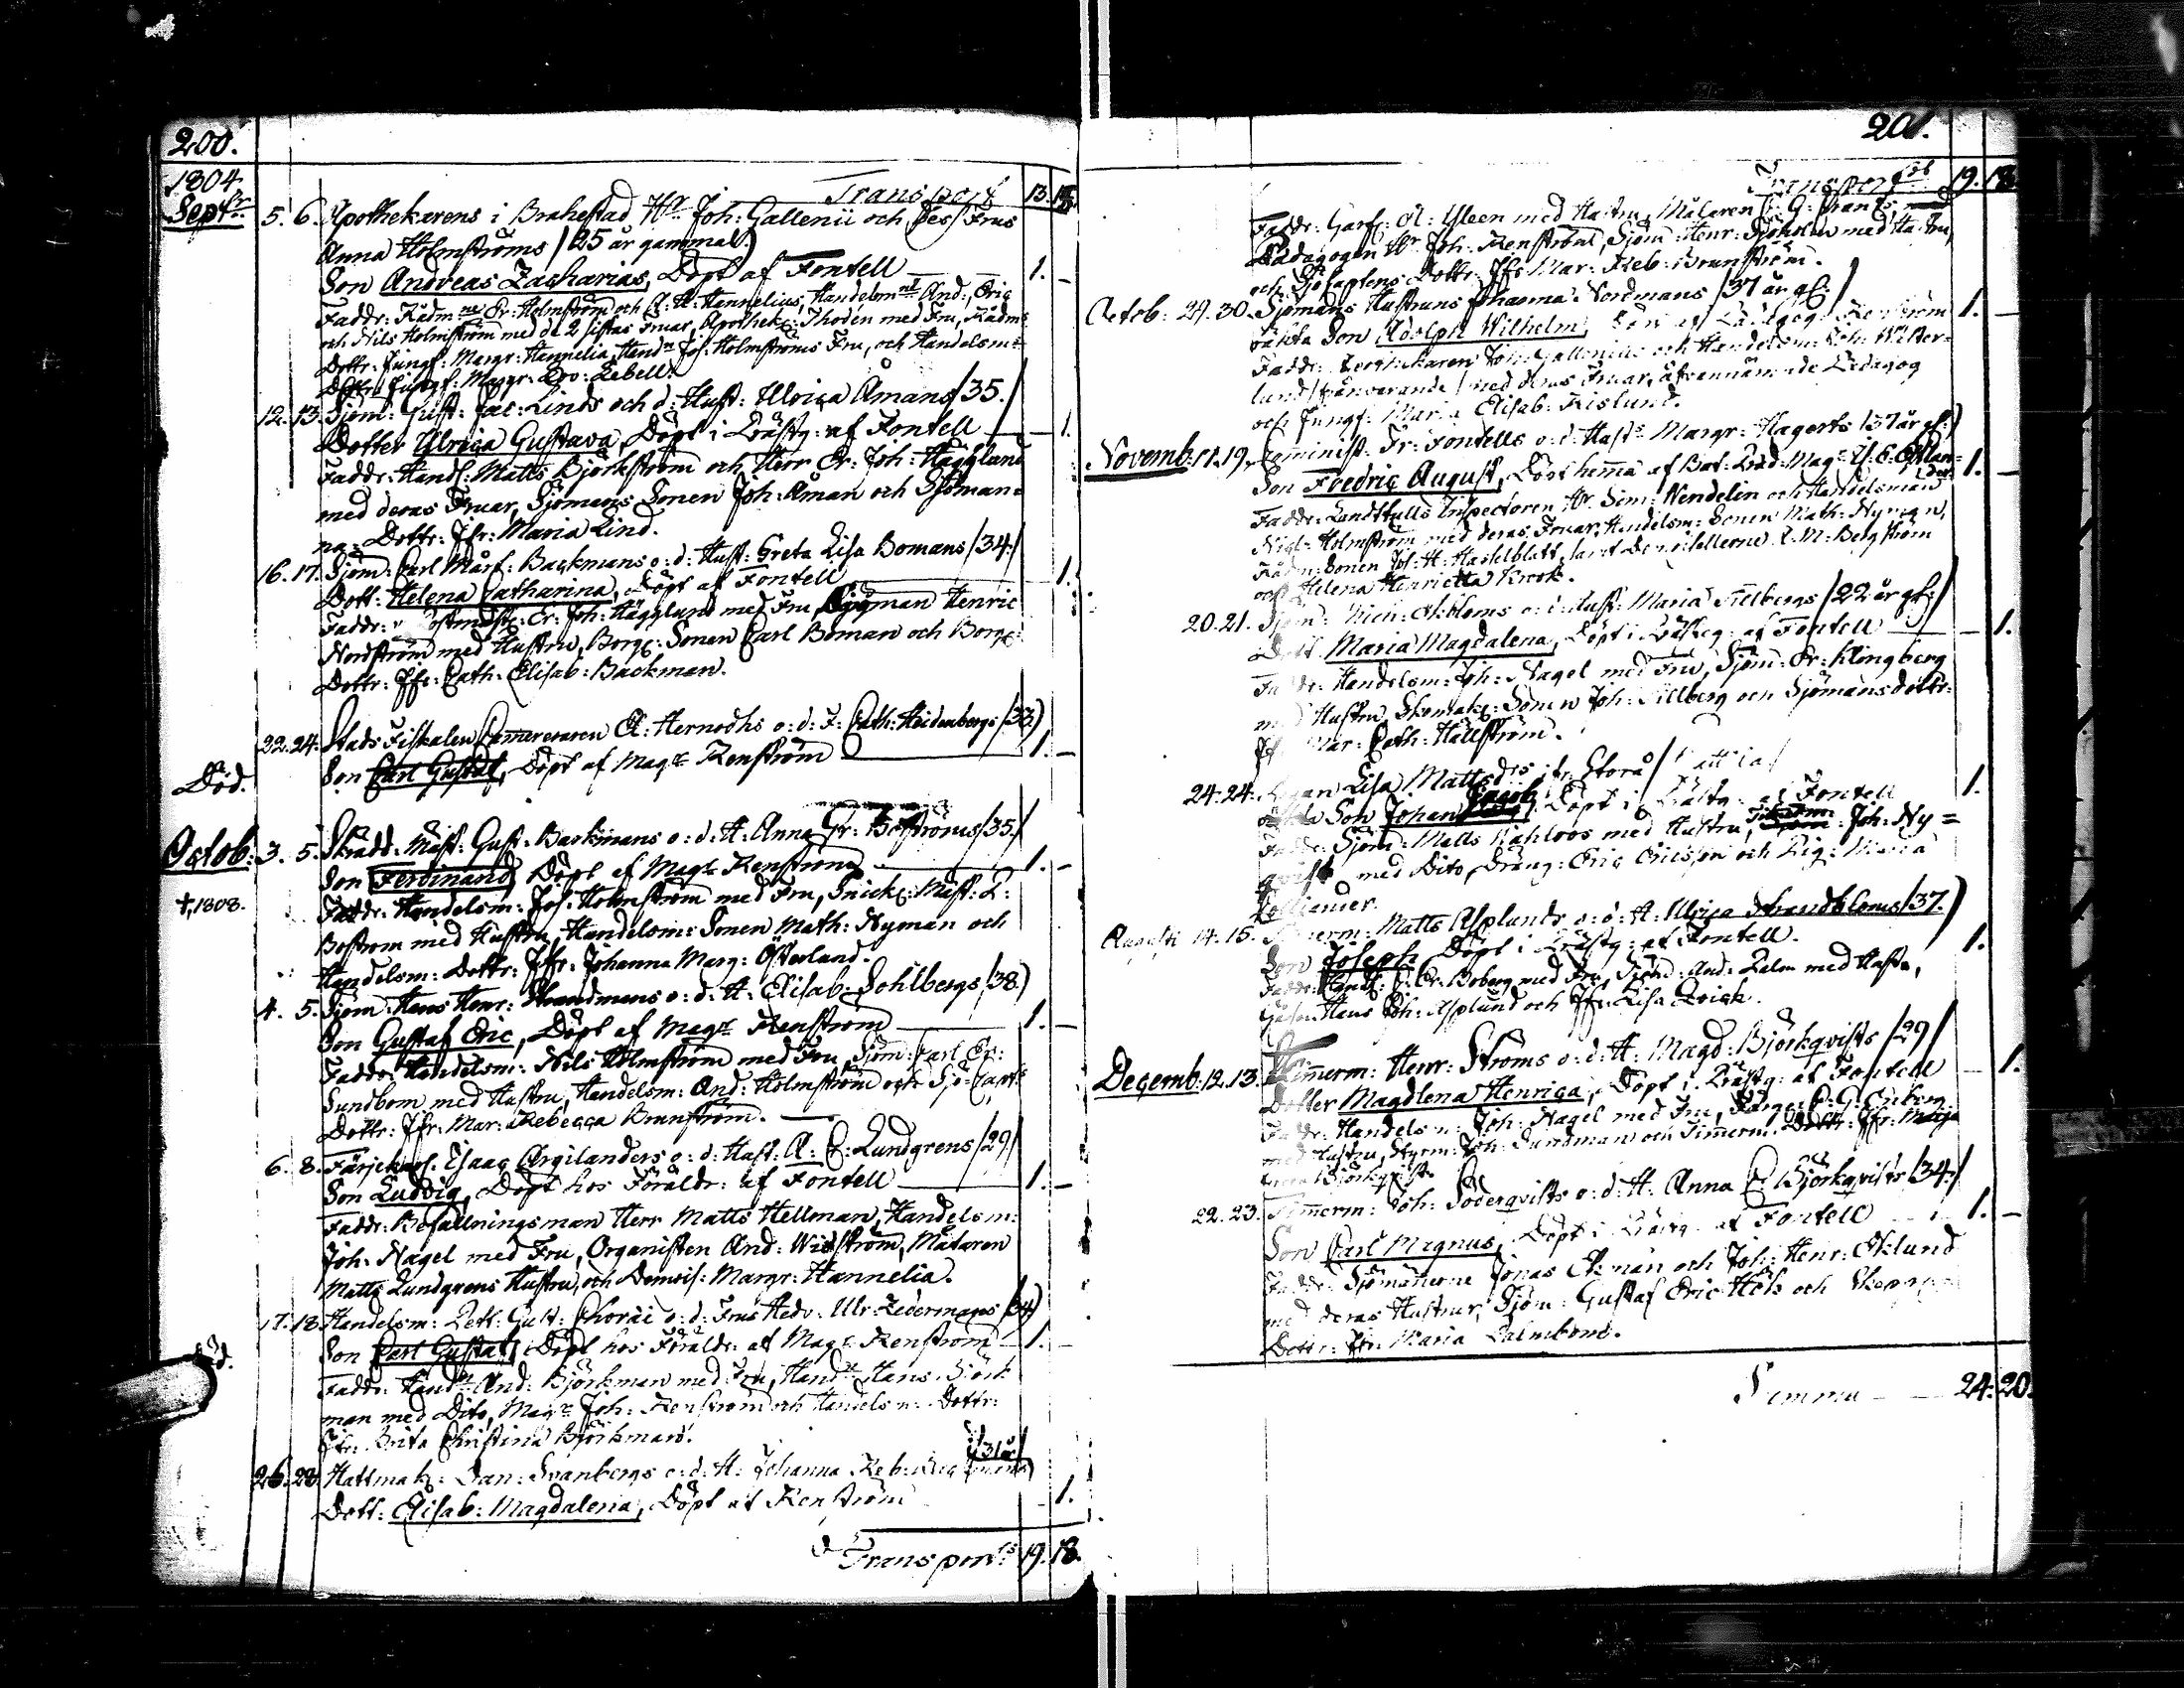 200.
1804
Transport 13.
Septr 5. 6. Apothekarens i Brahestad Hr Joh: Gallenii och des Frus
Anna Holmströms /25 år gammal./
Son Andreas Zacharias, Döpt af Fontell 1. –
Faddr: Rådmne Er: Holmström och A: H: Hannelius, Handelsm And:, Eric
och Nils Holmström med de 2 sistas Fruar, Apothek: Thodén med Fru, Rådms
Dottr: Jungf: Margr: Hannelia, Handn Jos: Holmströms Fru, och Handelsm:
Dottr Jungf: Margr: Lov: Zebell.
12. 13. Sjöm: Gust: Jac: Linds och d: Hust: Ulrica Åmans /35./
Dotter Ulrica Gustava, Döpt i Prästg: af Fontell – 1.
Faddr: Handl: Matts Björkström och Herr Er: Joh: Hägglund
med deras Fruar, Sjömans Sonen Joh: Åman och Sjöman=
na= Dottr: Jfr: Maria Lind.
16. 17. Sjöm: Carl Mårt: Backmans o: d: Hust: Greta Lisa Bomans /34:/
Dott: Helena Catharina, Döpt af Fontell 1.
Faddr: Er: Joh: Hägglund med Fru, Sjöman Henric
Nordström med Hustru, Borg: Sonen Carl Boman och Borg:
Dottr: Jfr: Cath: Elisab: Backman.
22. 24. Stads Fiskalen Camereraren A: Hernodhs o: d: F: Cath: Heidenbergs /33./
Död. Son Carl Gustaf, Döpt af Magr Renström 1. –
Octob: 3. 5. Skrädd: Mäst: Gust: Backmans o: d: H: Anna Gr: Boströms /35./
Son Ferdinand, Döpt af Magr Renström 1. –
†,1808. Faddr: Handelsm: Jos: Holmström med Fru, Snick: Mäst: Z:
Boström med Hustru, Handelsm: Sonen Math: Nyman och
Handelsm: Dottr: Jfr: Johanna Marg: Österlund.
4. 5. Sjöm: Hans Henr: Strandmans o: d: H: Elisab: Sohlbergs /38./
Son Gustaf Eric, Döpt af Magr Renström 1. –
Faddr: Handelsm: Nils Holmström med Fru, Sjöm: Carl Er:
Sundbom med Hustru, Handelsm: And: Holmström och Sjö-Capts
Dottr: Jfr: Mar: Rebecca Brunström.
6. 8. Färjekarl: Isaac Argilanders o: d: Hust: A: C: Lundgrens /29/
Son Ludvig, Döpt hos Föräldr: af Fontell 1. –
Faddr: Befallningsman Herr Matts Hellman, Handelsm:
Joh: Nagel med Fru, Organisten And: Widström, Mätaren
Matts Lundgrens Hustru, och Demois: Margr: Hannelia.
17. 18. Handelsm: Pett: Gust: Choræi o: d: Frus Hedv: Ulr: Zedermans /34/
Son Carl Gustaf, Döpt hos Föräldr: af Magr Renström 1. –
Faddr: Handn And: Björkman med Fru, Handn Hans Björk
man med Dito, Magr Joh: Renström och Handelsm: Dottr:
Jfr: Brita Christina Björkman.
/31år/
26. 28. Hattmak: Dan: Svanbergs o: d: H: Johanna Reb:
Dott: Elisab: Magdalena, Döpt af Renström 1.
Transport 19. 18.
201.
Transport 19. 18.
Faddr: Garf: Al: Yleen med Hustru, Målaren C: G: Frants
Pædagogen Hr Joh: Renström, Sjöm: Henr: Sjöholm med Hustru,
och Sjö Captens Dottr: Jfr Mar: Reb: Brunström.
Octob: 29. 30. Sjömans Hustruns Johanna Nordmans /37 år gl:/
oäkta Son Adolph Wilhelm, 1. –
Faddr: Joh: Gallenius och Handelsm: Joh: Wäster=
lund /frånvarande/ med deras Fruar, Pedagog
och Jungf: Maria Elisab: Frislund.
Novemb: 18. 19. Comminist: Fr: Fontells o: d: Hust: Margr: Hagerts /37 år gl:/
Son Fredric August, Döpt hemma af Bat: Præd: Mag: 1. –
Faddr: Landttulls Inspectoren Hr Sim: Wendelin och Handelsman
Nicl: Holmström med deras Fruar, Handelsm: Sonen Math: Nyman,
Rådm: Sonen Joh: H: Hasselblatt, samt Demoisellerne L: M: Bergström
och Helena Henrietta Krook.
20. 21. Sjöm: Mich: Ekbloms o: d: Hust: Maria Tillbergs /22 år gl:/
Dott: Maria Magdalena, Döpt i Prästg: af Fontell – 1.
Faddr: Handelsm: Joh: Nagel med Fru, Sjöm: Er: Klingberg
med Hustru, Skomak: Sonen Joh: Tillberg och Sjömansdottr:
Jfr Mar: Cath: Hällström.
24. 24. Lisa Mattsdr: fr: Storå
oäkta Son Johan Jacob, Döpt i Prästg: af Fontell 1.
Faddr: Sjöm: Matts Kahloos med Hustru, Timerm: Joh: Ny=
qvist med Dito, Dräng: Eric Ericsson och Pig: Maria
Augusti 14. 15. Timerm: Matts Asplunds o: d: H: Ulrica Strandbloms /37./
Son Joseph, Döpt i Prästg: af Fontell. 1.
Faddr: Er: Boberg med Fru, Sjöm: And: Palm med Hustr,
Joh: Asplund och Jfr: Lisa Qvick.
Decemb: 12. 13. Timerm: Henr: Ströms o: d: H: Magd: Björkqvists /29/
Dotter Magdlena Henrica, Döpt i Prästg: af Fontell – 1.
Faddr: Handelsm: Joh: Nagel med Fru, Färg: C: G: Enberg
med Hustru, Styrm: Joh: Sundman och Timerm: Dottr: Jfr: Maja
Björkqvist.
22. 23. Timerm: Joh: Söderqvists o: d: H: Anna C: Björkqvists /34:/
Son Carl Magnus, Döpt i Prästg: af Fontell 1. –
Faddr: Sjömännerne Jonas Ekman och Joh: Henr: Eklund
med deras Hustrur, Sjöm: Gustaf Eric Hök och
Dottr: Jfr: Maria Palmbom.
Summa 24. 20.